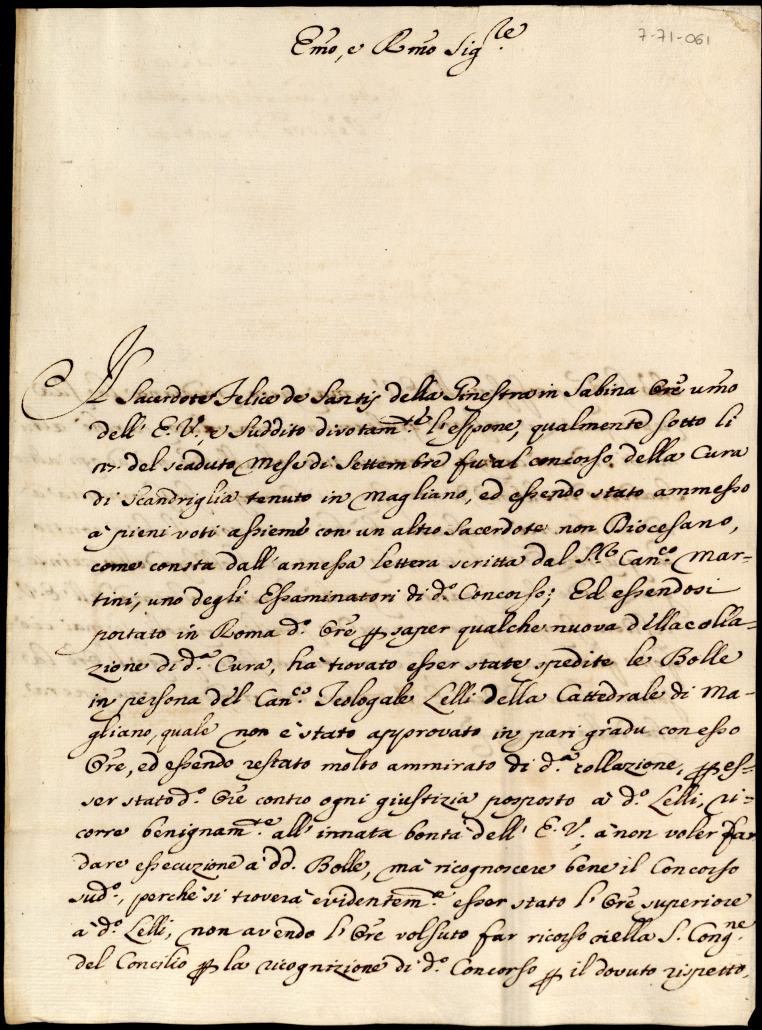 7-71-061
Emo, e Rmo Sig.re
Il Sacerdote Felice de Santis della Ginestra in Sabina Ore umo
dell' E. V., e Suddito divotam.te l'espone, qualmente sotto li
del scaduto Mese di Settembre fu al concorso della Cura
di Scandriglia tenuto in Magliano, ed essendo stato ammesso
a pieni voti assieme con un altro Sacerdote non Diocesano,
come consta dall' annessa lettera scritta dal Can.co Mar=
tini, uno degli Essaminatori di d.o Concorso; Ed essendosi
portato in Roma d.o Ore p saper qualche nuova della colla=
zione di d.a Cura, ha trovato esser state spedite le Bolle
in persona del Can.co Teologale Lelli della Cattedrale di Ma=
gliano, quale non è stato approvato in pari gradu con esso
Ore, ed essendo restato molto ammirato di d.a collazione, p es=
ser stato d.o Ore contro ogni giustizia posposto a d.o Lelli, ri=
corre benignam.te all' innata bontà dell' E. V. a non voler far
dare essecuzione a dd. Bolle, ma ricognoscere bene il Concorso
sud.o, perche si troverà evidentem.te esser stato l' Ore superiore
a d.o Lelli, non avendo l' Ore volsuto far ricorso nella S. Cong.ne
del Concilio p la ricognizione di d.o Concorso p il dovuto rispetto,